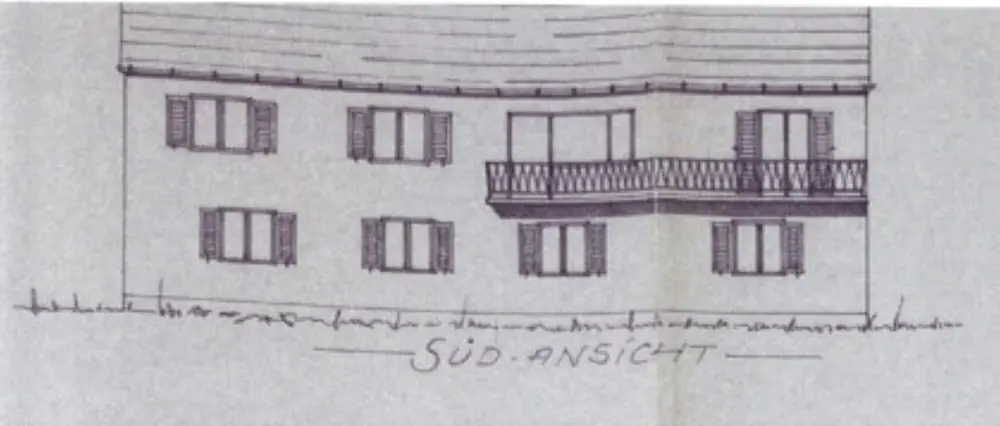 SÜD-ANSICHT